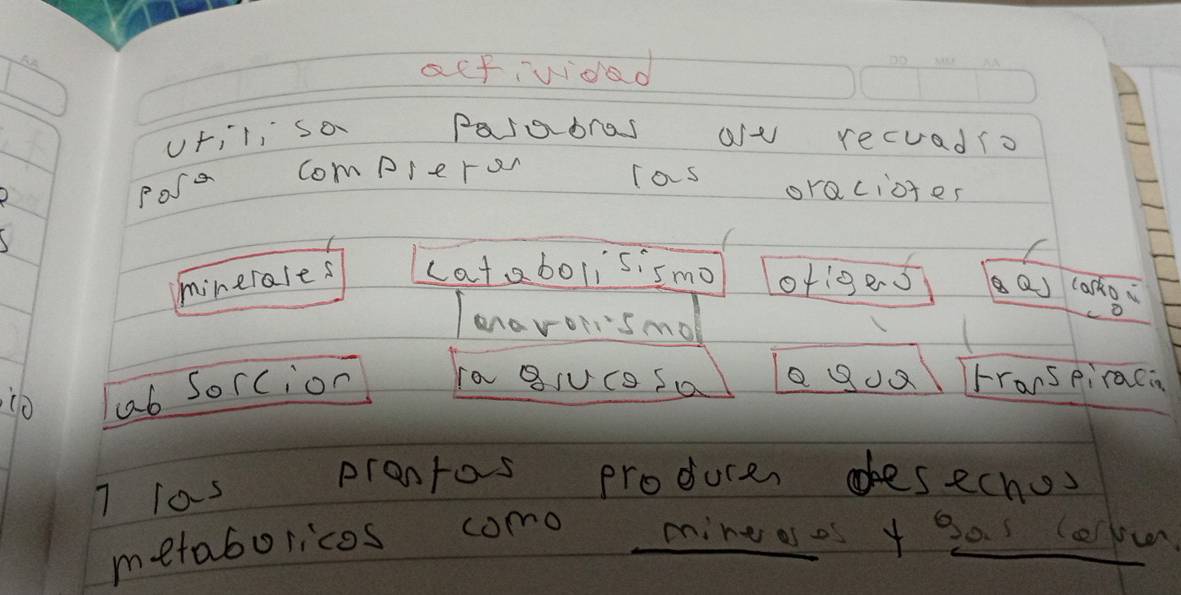 actividad
utilisa palabras del recuadro
para completar las oraciones
minerales catabolisismo oxigeno gas carbonico
anavolismo
absorcion la glucosa agua transpiracion
1 las plantas producen desechos
metabolicos como minerales y gas carbon